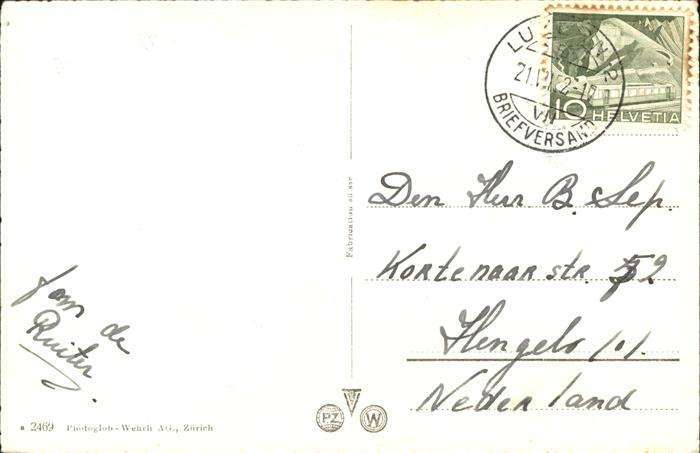 LUZERN 2
21.VII.52-18
VII
BRIEFVERSAND
10 HELVETIA
Fabrication suisse
Den Herr B. Sep.
Kortenaarstr. 52
Hengelo (o).
Nederland
fam de
Ruiter.
2469 Photoglob-Wehrli AG., Zürich
PZ
W